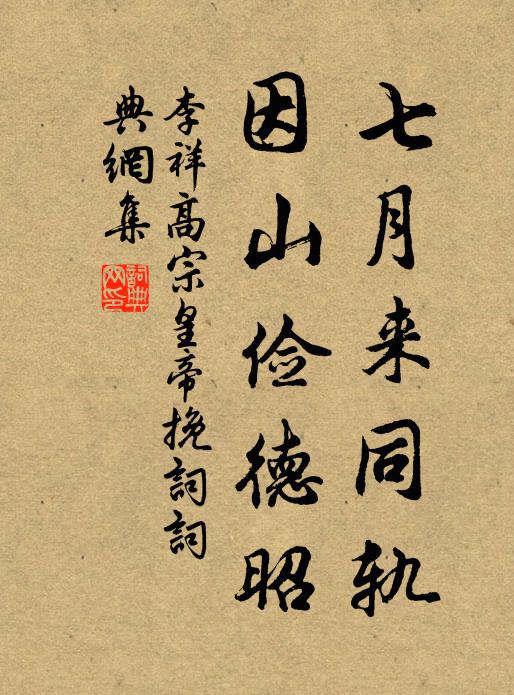 七月来同轨
因山俭德昭
李祥高宗皇帝挽詞詞
典網集
詞典
网印